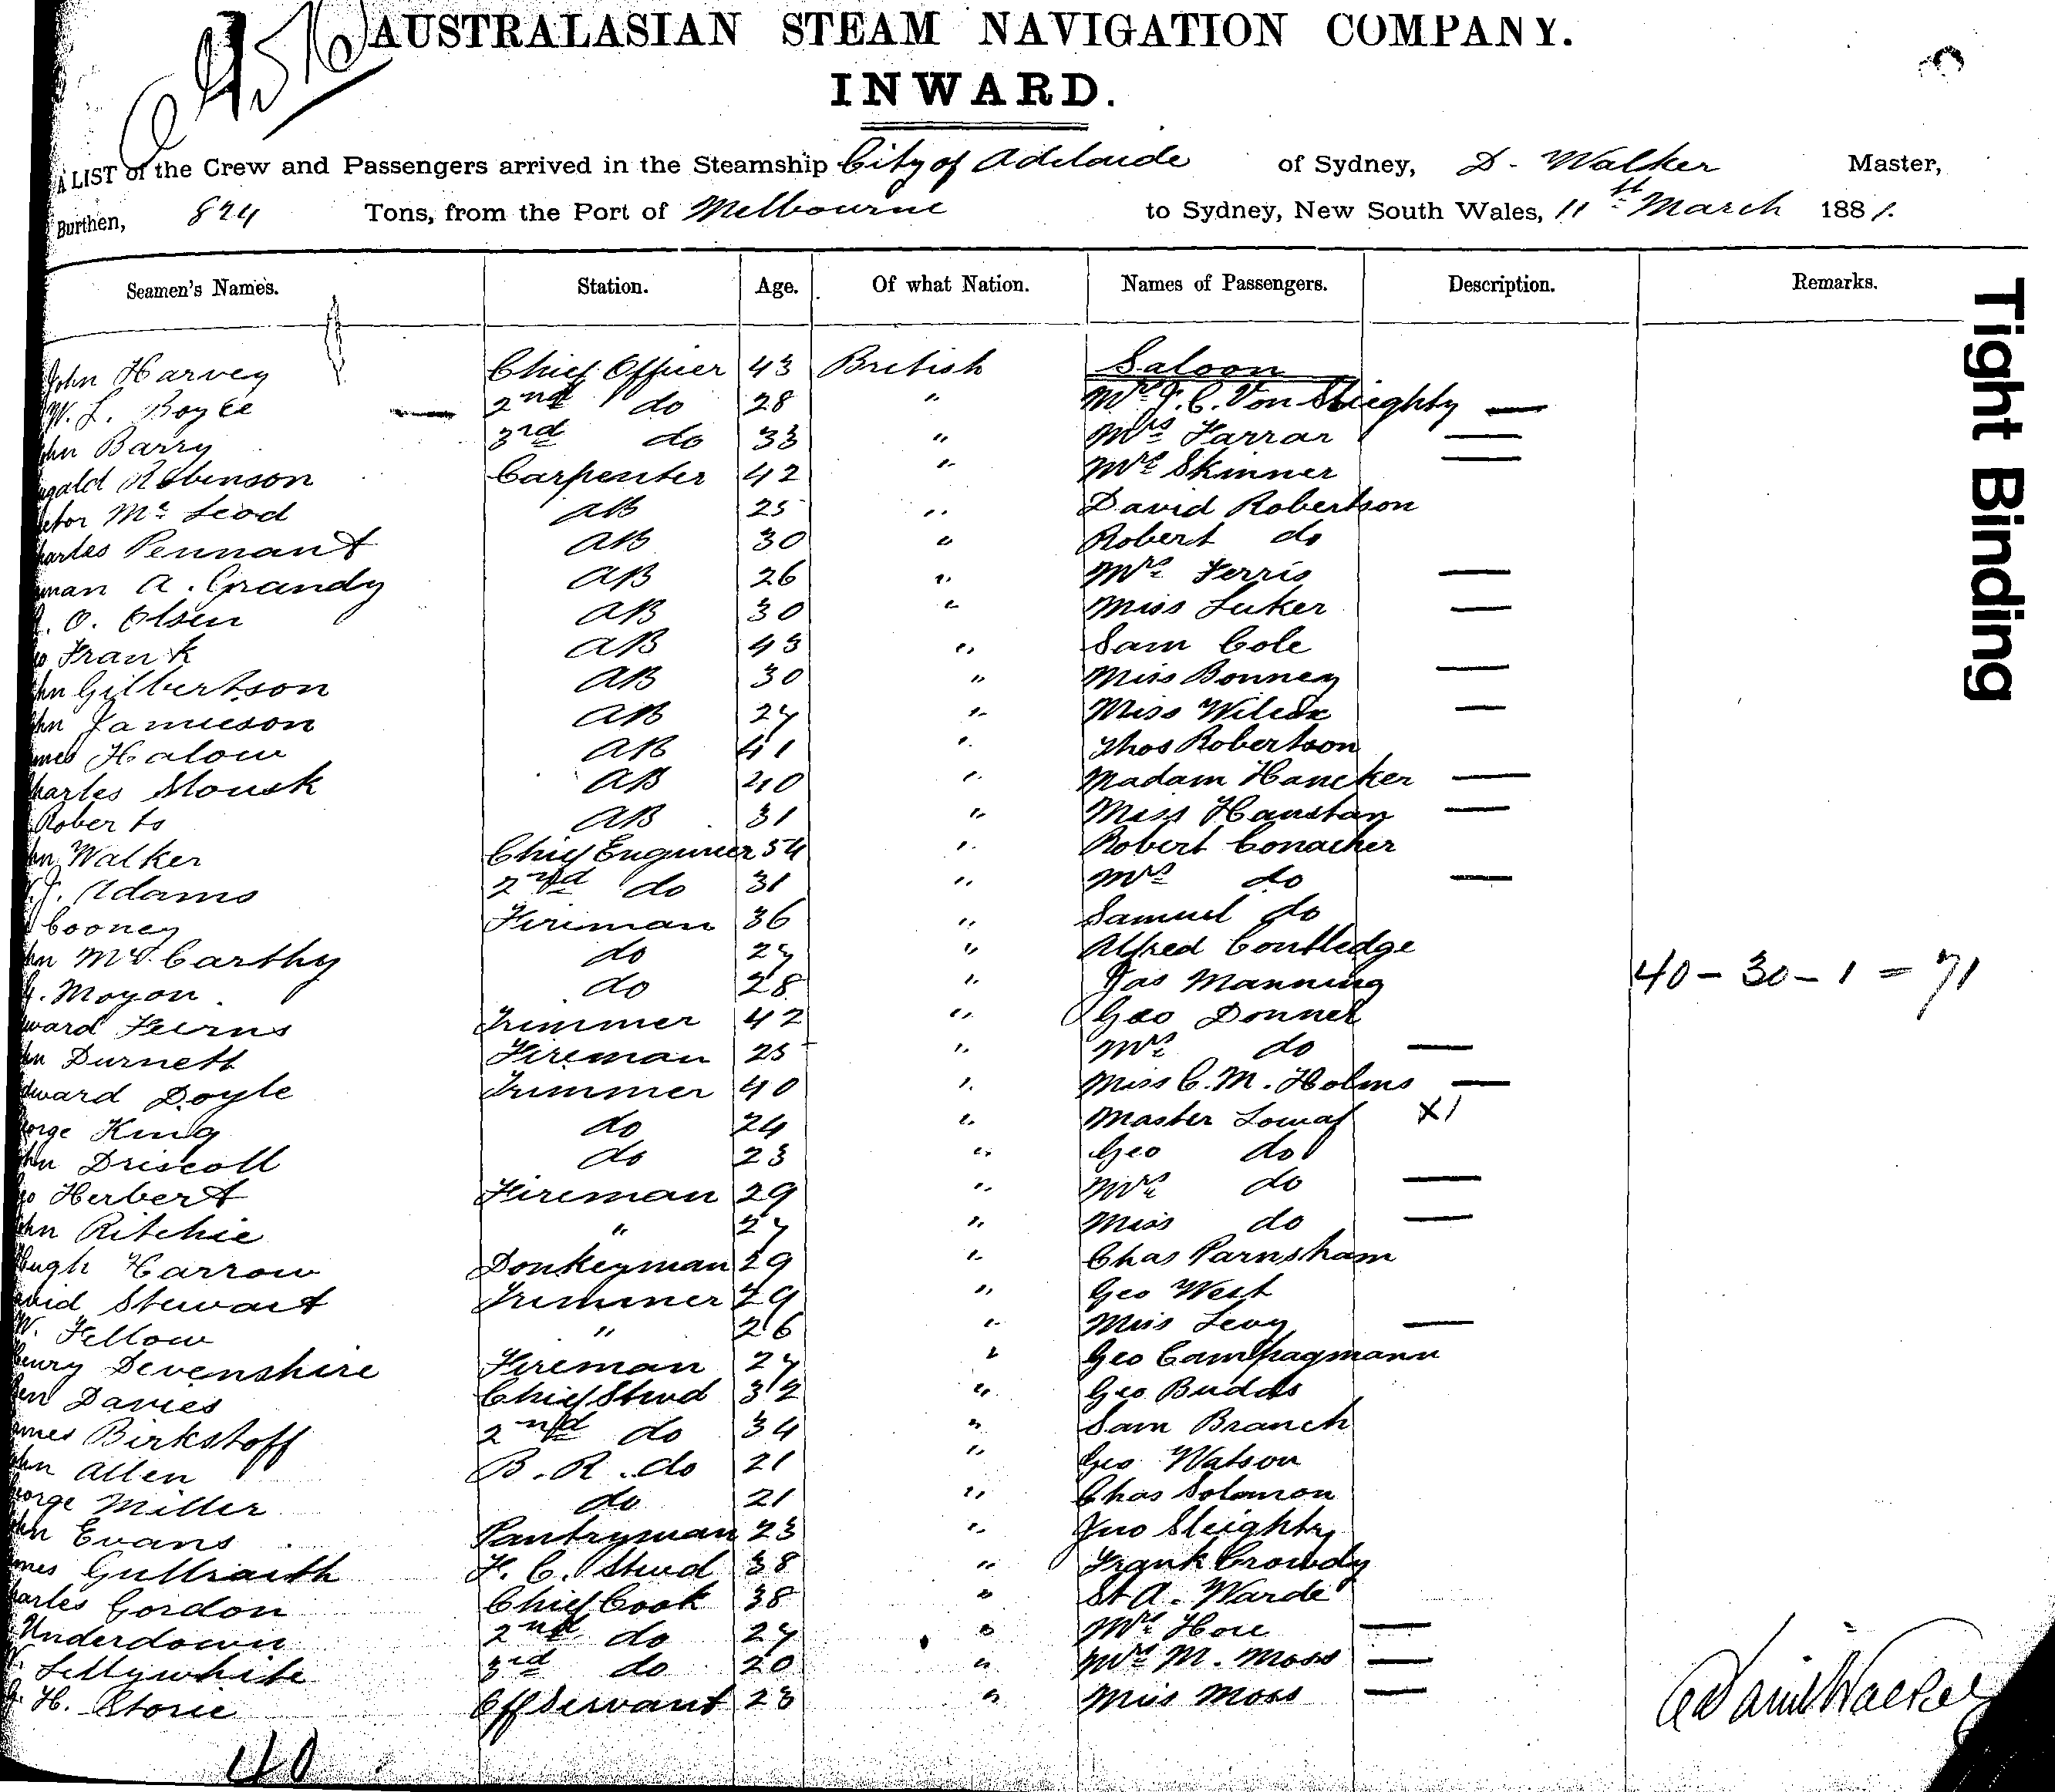 AUSTRALASIAN STEAM NAVIGATION COMPANY.
INWARD.
A LIST of the Crew and Passengers arrived in the Steamship City of Adelaide of Sydney, D. Walker Master,
Burthen, 824 Tons, from the Port of Melbourne to Sydney, New South Wales, 11th March 1881.
Seamen's Names. Station. Age. Of what Nation. Names of Passengers. Description. Remarks.
John Harvey Chief Officer 43 British Saloon
W. L. Boyle — 2nd do 28 " Mrs Von —
hn Barry 3rd do 33 " Mrs Farrar —
gald Robinson Carpenter 42 " Mrs Skinner —
Mc Leod AB 25 " David Robertson
harles Pennant AB 30 " Robert do
man A. Grandy AB 26 " Mrs Ferris —
. O. Olsen AB 30 " Miss Luker —
Frank AB 43 " Sam Cole
hn Gilbertson AB 30 " Miss Bonney —
hn Jamieson AB 27 " Miss Wilcox —
mes Halow AB 41 " Thos Robertson
harles Mousk AB 40 " Madam Hancker —
Roberts AB 31 " Miss Haustan —
hn Walker Chief Engineer 54 " Robert Conacher
. J. Adams 2nd do 31 " Mrs do —
Cooney Fireman 36 " Samuel do
hn McCarthy do 27 " Alfred Coutledge
. Moyon do 28 " Jas Manning 40 - 30 - 1 = 71
ward Feirns Trimmer 42 " Geo Donnel
hn Durnett Fireman 25 " Mrs do —
dward Doyle Trimmer 40 " Miss C. M. Holms —
orge King do 24 " Master X1
hn Driscoll do 23 " Geo do
Herbert Fireman 29 " Mrs do —
hn Ritchie " 27 " Miss do —
Hugh Harrow Donkeyman 29 " Chas Parnsham
avid Stewart Trimmer 29 " Geo West
W. Fellow " 26 " Miss Levy —
Henry Devenshire Fireman 27 " Geo Campagmann
en Davies Chief Stwd 32 " Geo Budds
ames Birkstoff 2nd do 34 " Sam Branch
ohn Allen B. R. do 21 " Geo Watson
eorge Miller do 21 " Chas Solomon
ohn Evans Pantryman 23 " Jno Sleighty
mes Gullraith F. C. Stwd 38 " Frank Crowdy
harles Gordon Chief Cook 38 " St A. Warde
Underdown 2nd do 27 " Mrs Hore —
. Lillywhite 3rd do 20 " Mrs M. Moss —
. H. Storie Off Servant 28 " Miss Moss —
40
Tight Binding